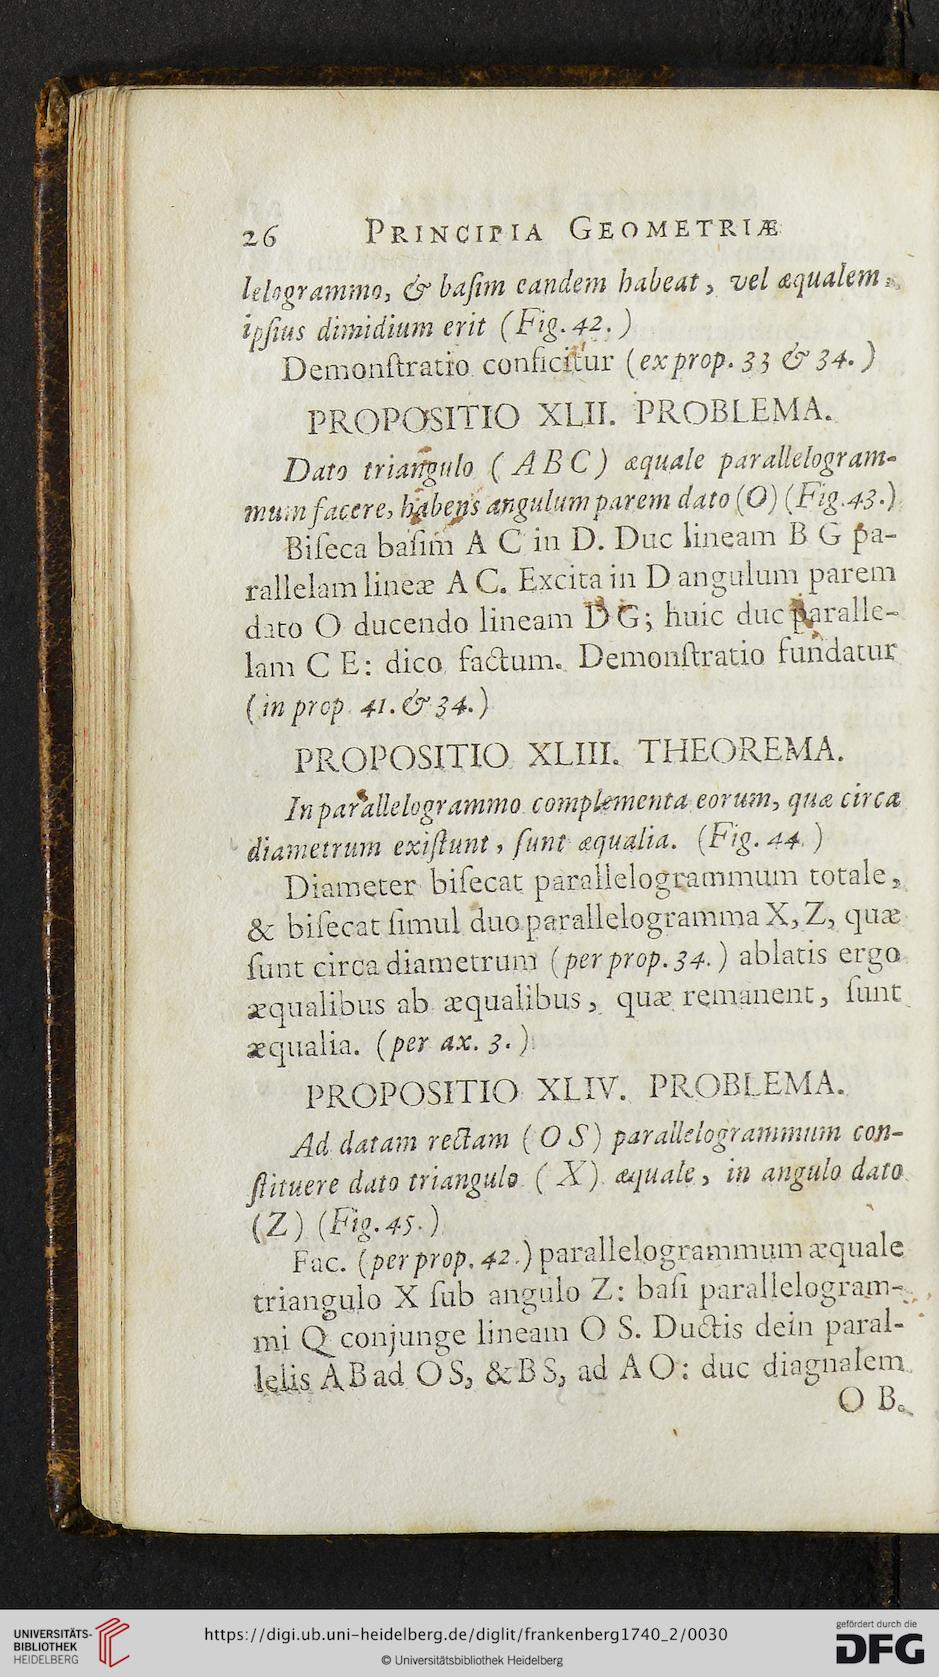 26 PRINCIPIA GEOMETRIÆ
lelogrammo, & baſim eandem habeat, vel æqualem,
ipſius dimidium erit (Fig. 42.)
Demonſtratio conficitur (ex prop. 33 & 34.)
PROPOSITIO XLII. PROBLEMA.
Dato triangulo (ABC) æquale parallelogram-
mum facere, habens angulum parem dato (O) (Fig. 43.)
Biſeca baſim A C in D. Duc lineam B G pa-
rallelam lineæ A C. Excita in D angulum parem
dato O ducendo lineam D G; huic duc paralle-
lam C E: dico factum. Demonſtratio fundatur
(in prop. 41. & 34.)
PROPOSITIO XLIII. THEOREMA.
In parallelogrammo complementa eorum, quæ circa
diametrum exiſtunt, ſunt æqualia. (Fig. 44.)
Diameter biſecat parallelogrammum totale,
& biſecat ſimul duo parallelogramma X, Z, quæ
ſunt circa diametrum (per prop. 34.) ablatis ergo
æqualibus ab æqualibus, quæ remanent, ſunt
æqualia. (per ax. 3.)
PROPOSITIO XLIV. PROBLEMA.
Ad datam rectam (O S) parallelogrammum con-
ſtituere dato triangulo (X) æquale, in angulo dato
(Z) (Fig. 45.)
Fac. (per prop. 42.) parallelogrammum æquale
triangulo X ſub angulo Z: baſi parallelogram-
mi Q conjunge lineam O S. Ductis dein paral-
lelis A B ad O S, & B S, ad A O: duc diagnalem
O B.
UNIVERSITÄTS-
BIBLIOTHEK
HEIDELBERG
https://digi.ub.uni-heidelberg.de/diglit/frankenberg1740_2/0030
© Universitätsbibliothek Heidelberg
gefördert durch die
DFG